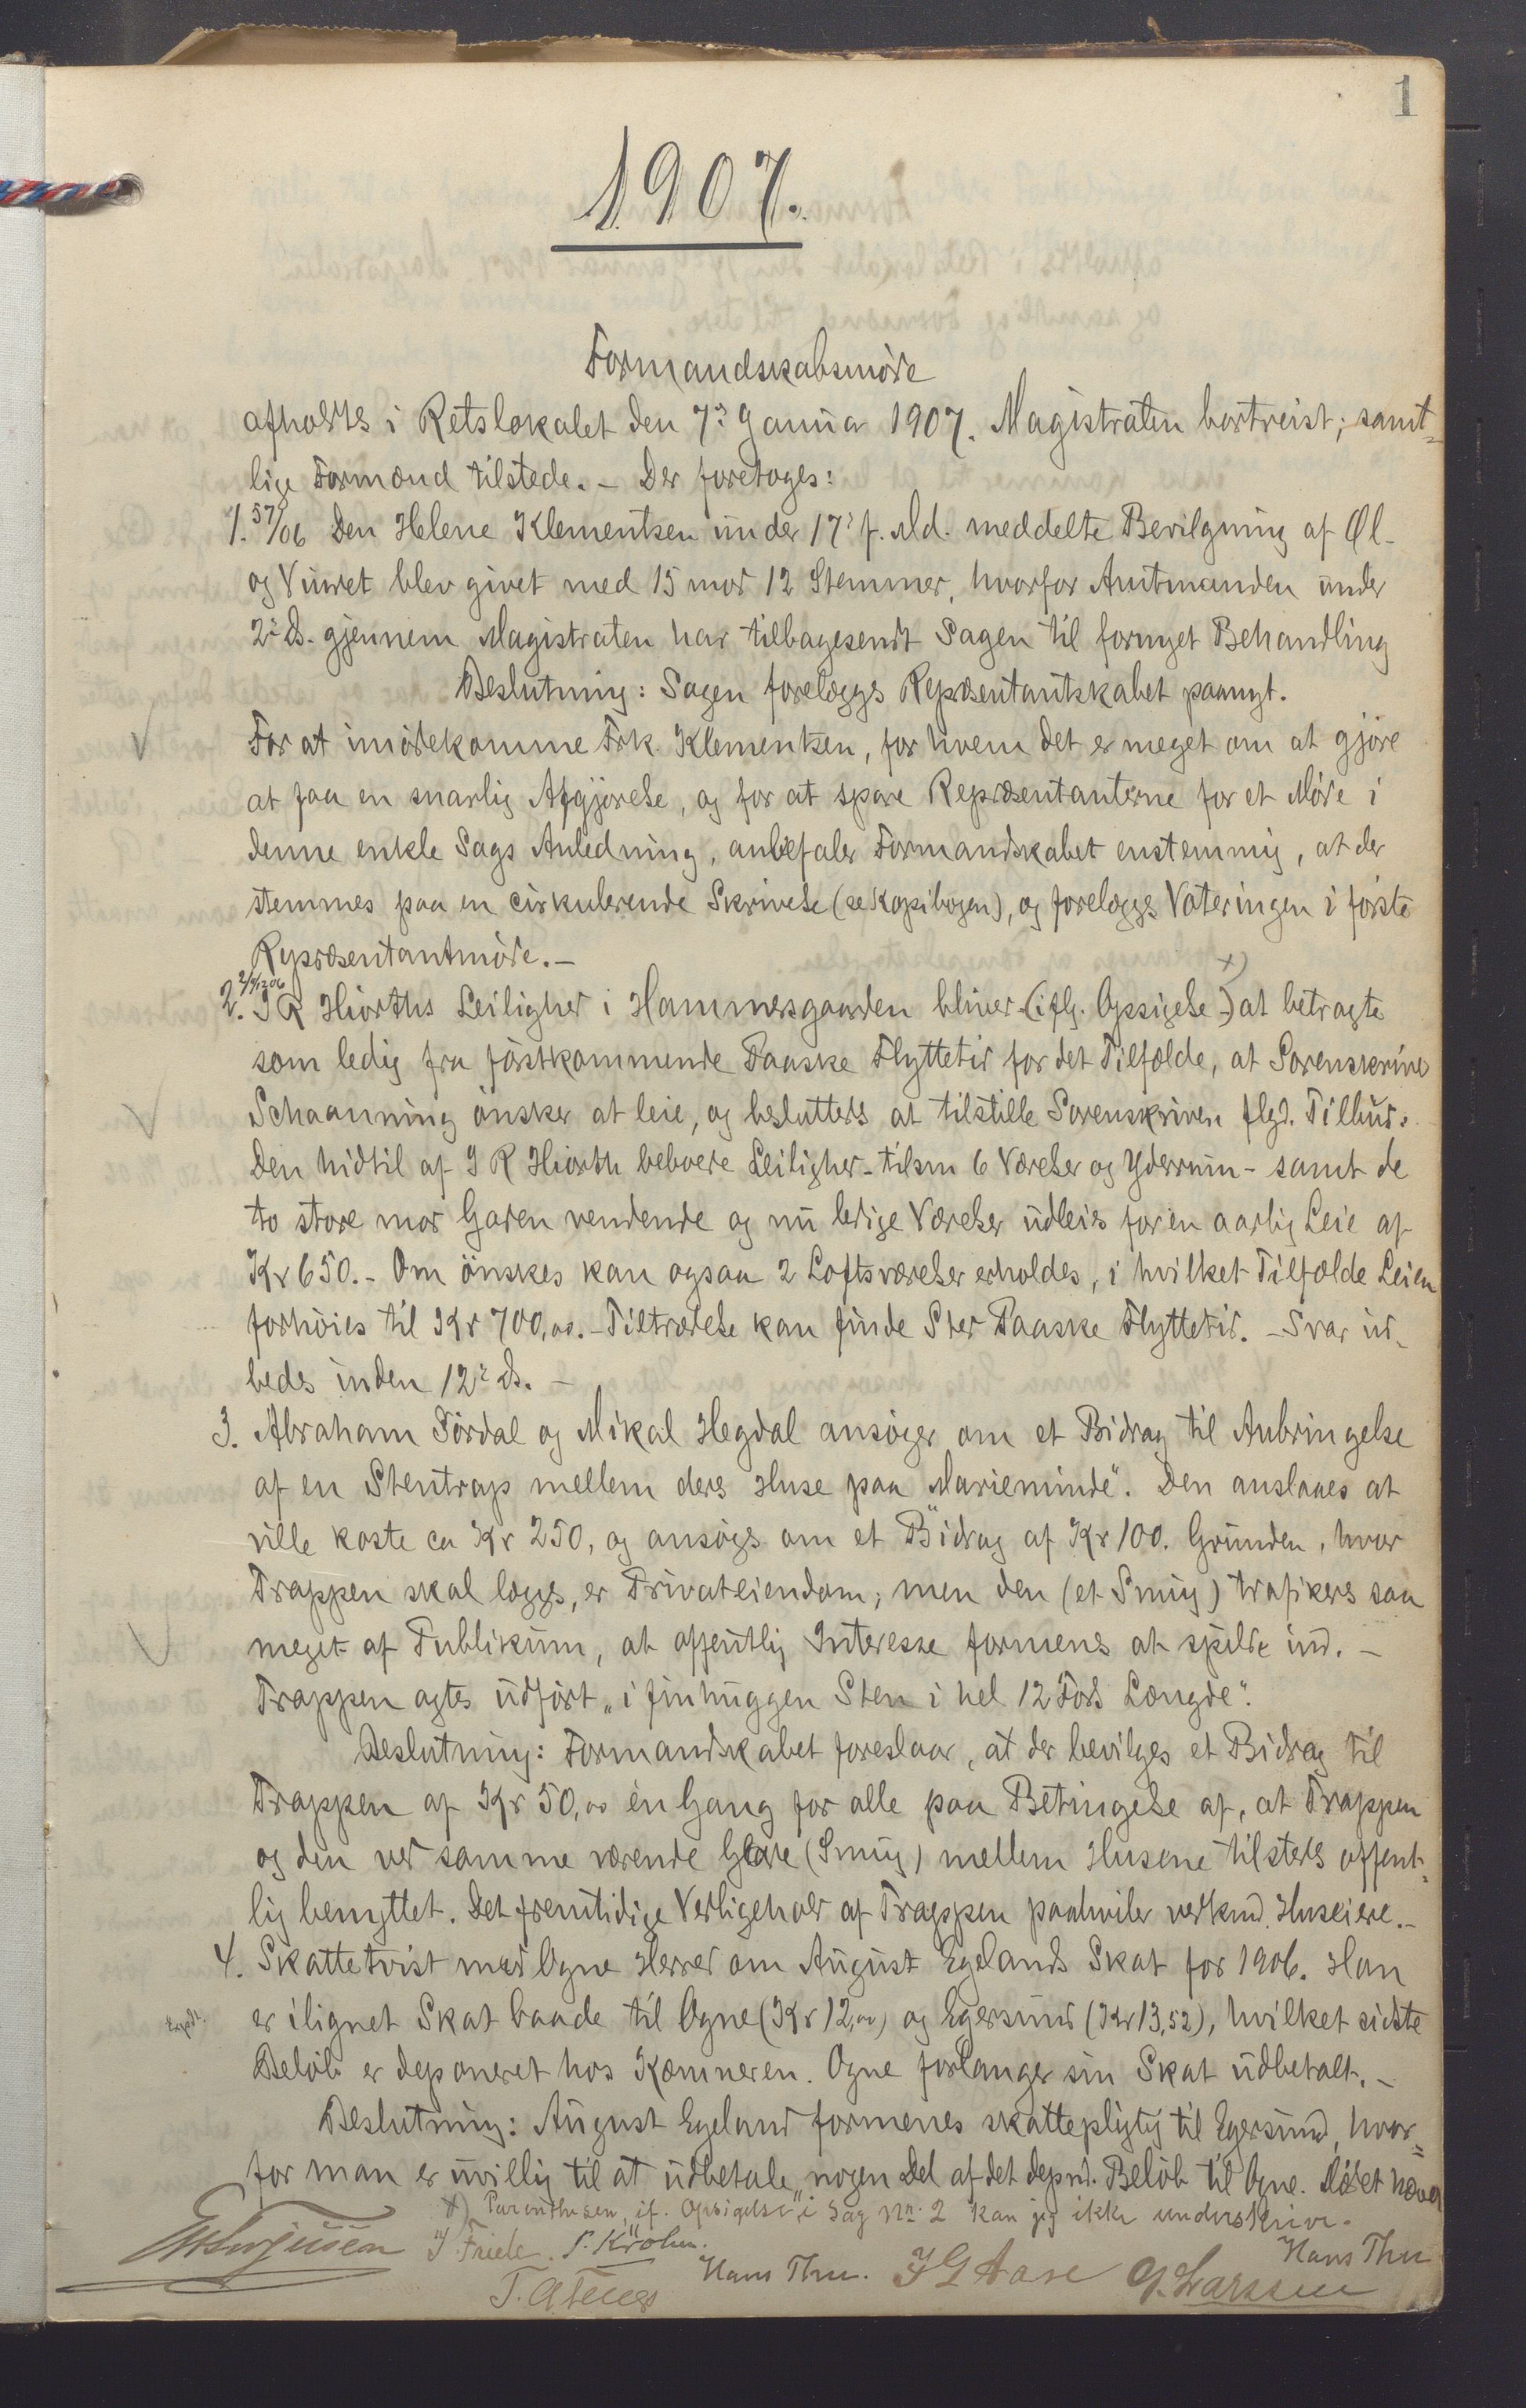 1
1907.
Formandskabsmøde
afholdts i Retslokalet den 7de Januar 1907. Magistraten bortreist; samt=
lige Formænd tilstede. – Der foretoges:
1. 57/06 Den Helene Klementsen under 17' f. Md. meddelte Bevilgning af Øl-
og Vinret blev givet med 15 mod 12 Stemmer, hvorfor Amtmanden under
2' ds. gjennem Magistraten har tilbagesendt Sagen til fornyet Behandling
Beslutning: Sagen forelægges Repræsentantskabet paanyt.
For at imødekomme Frk. Klementsen, for hvem det er meget om at gjøre
at faa en snarlig Afgjørelse, og for at spare Repræsentanterne for et Møde i
denne enkle Sags Anledning, anbefaler Formandskabet enstemmig, at der
stemmes paa en cirkulerende Skrivelse (se Kopibogen), og forelægges Voteringen i første
Repræsentantmøde. –
x)
2. J R Hiorths Leilighed i Hammersgaarden bliver (iflg. Opsigelse) at betragte
som ledig fra førstkommende Paaske Flyttetid for det Tilfælde, at Sorenskriver
Schaanning ønsker at leie, og besluttes at tilstille Sorenskriven flgd. Tilbud:
Den hidtil af J R Hiorth beboede Leilighed – tilsm 6 Værelser og Yderrum – samt de
to store mod Gaden vendende og nu ledige Værelser udleies for en aarlig Leie af
Kr 650. – Om ønskes kan ogsaa 2 Loftsværelser erholdes, i hvilket Tilfælde Leien
forhøies til Kr 700,oo. – Tiltrædelse kan finde Sted Paaske Flyttetid. – Svar ud-
bedes inden 12' ds. –
3. Abraham Førdal og Mikal Hegdal ansøger om et Bidrag til Anbringelse
af en Stentrap mellem deres Huse paa „Marieminde". Den anslaaes at
ville koste ca Kr 250, og ansøges om et Bidrag af Kr 100. Grunden, hvor
Trappen skal lægges, er Privateiendom; men den (et Smug) trafikeres saa
meget af Publikum, at offentlig Interesse formenes at spille ind. –
Trappen agtes udført „i finhuggen Sten i hel 12 Fods Længde".
Beslutning: Formandskabet foreslaar, at der bevilges et Bidrag til
Trappen af Kr 50,oo én Gang for alle paa Betingelse af, at Trappen
og den ved samme værende (Smug) mellem Husene tilstedes offent-
lig benyttet. Det fremtidige Vedligehold af Trappen paahviler vedkmd. Huseiere. –
4. Skattetvist med Ogne Herred om August Egelands Skat for 1906. Han
Expdt.
er ilignet Skat baade til Ogne (Kr 12,oo) og Egersund (Kr 13,52), hvilket sidste
Beløb er deponeret hos Kæmneren. Ogne forlanger sin Skat udbetalt. –
Beslutning: August Egeland formenes skattepligtig til Egersund, hvor=
for man er uvillig til at udbetale nogen Del af det depnd. Beløb til Ogne. Mødet hævet
x) Parenthesen „if. Opsigelse" i Sag Nr. 2 kan jeg ikke underskrive.
Hans Thu
J. Friele. P. Krohn.
Hans Thu. J G Aase G. Larssen